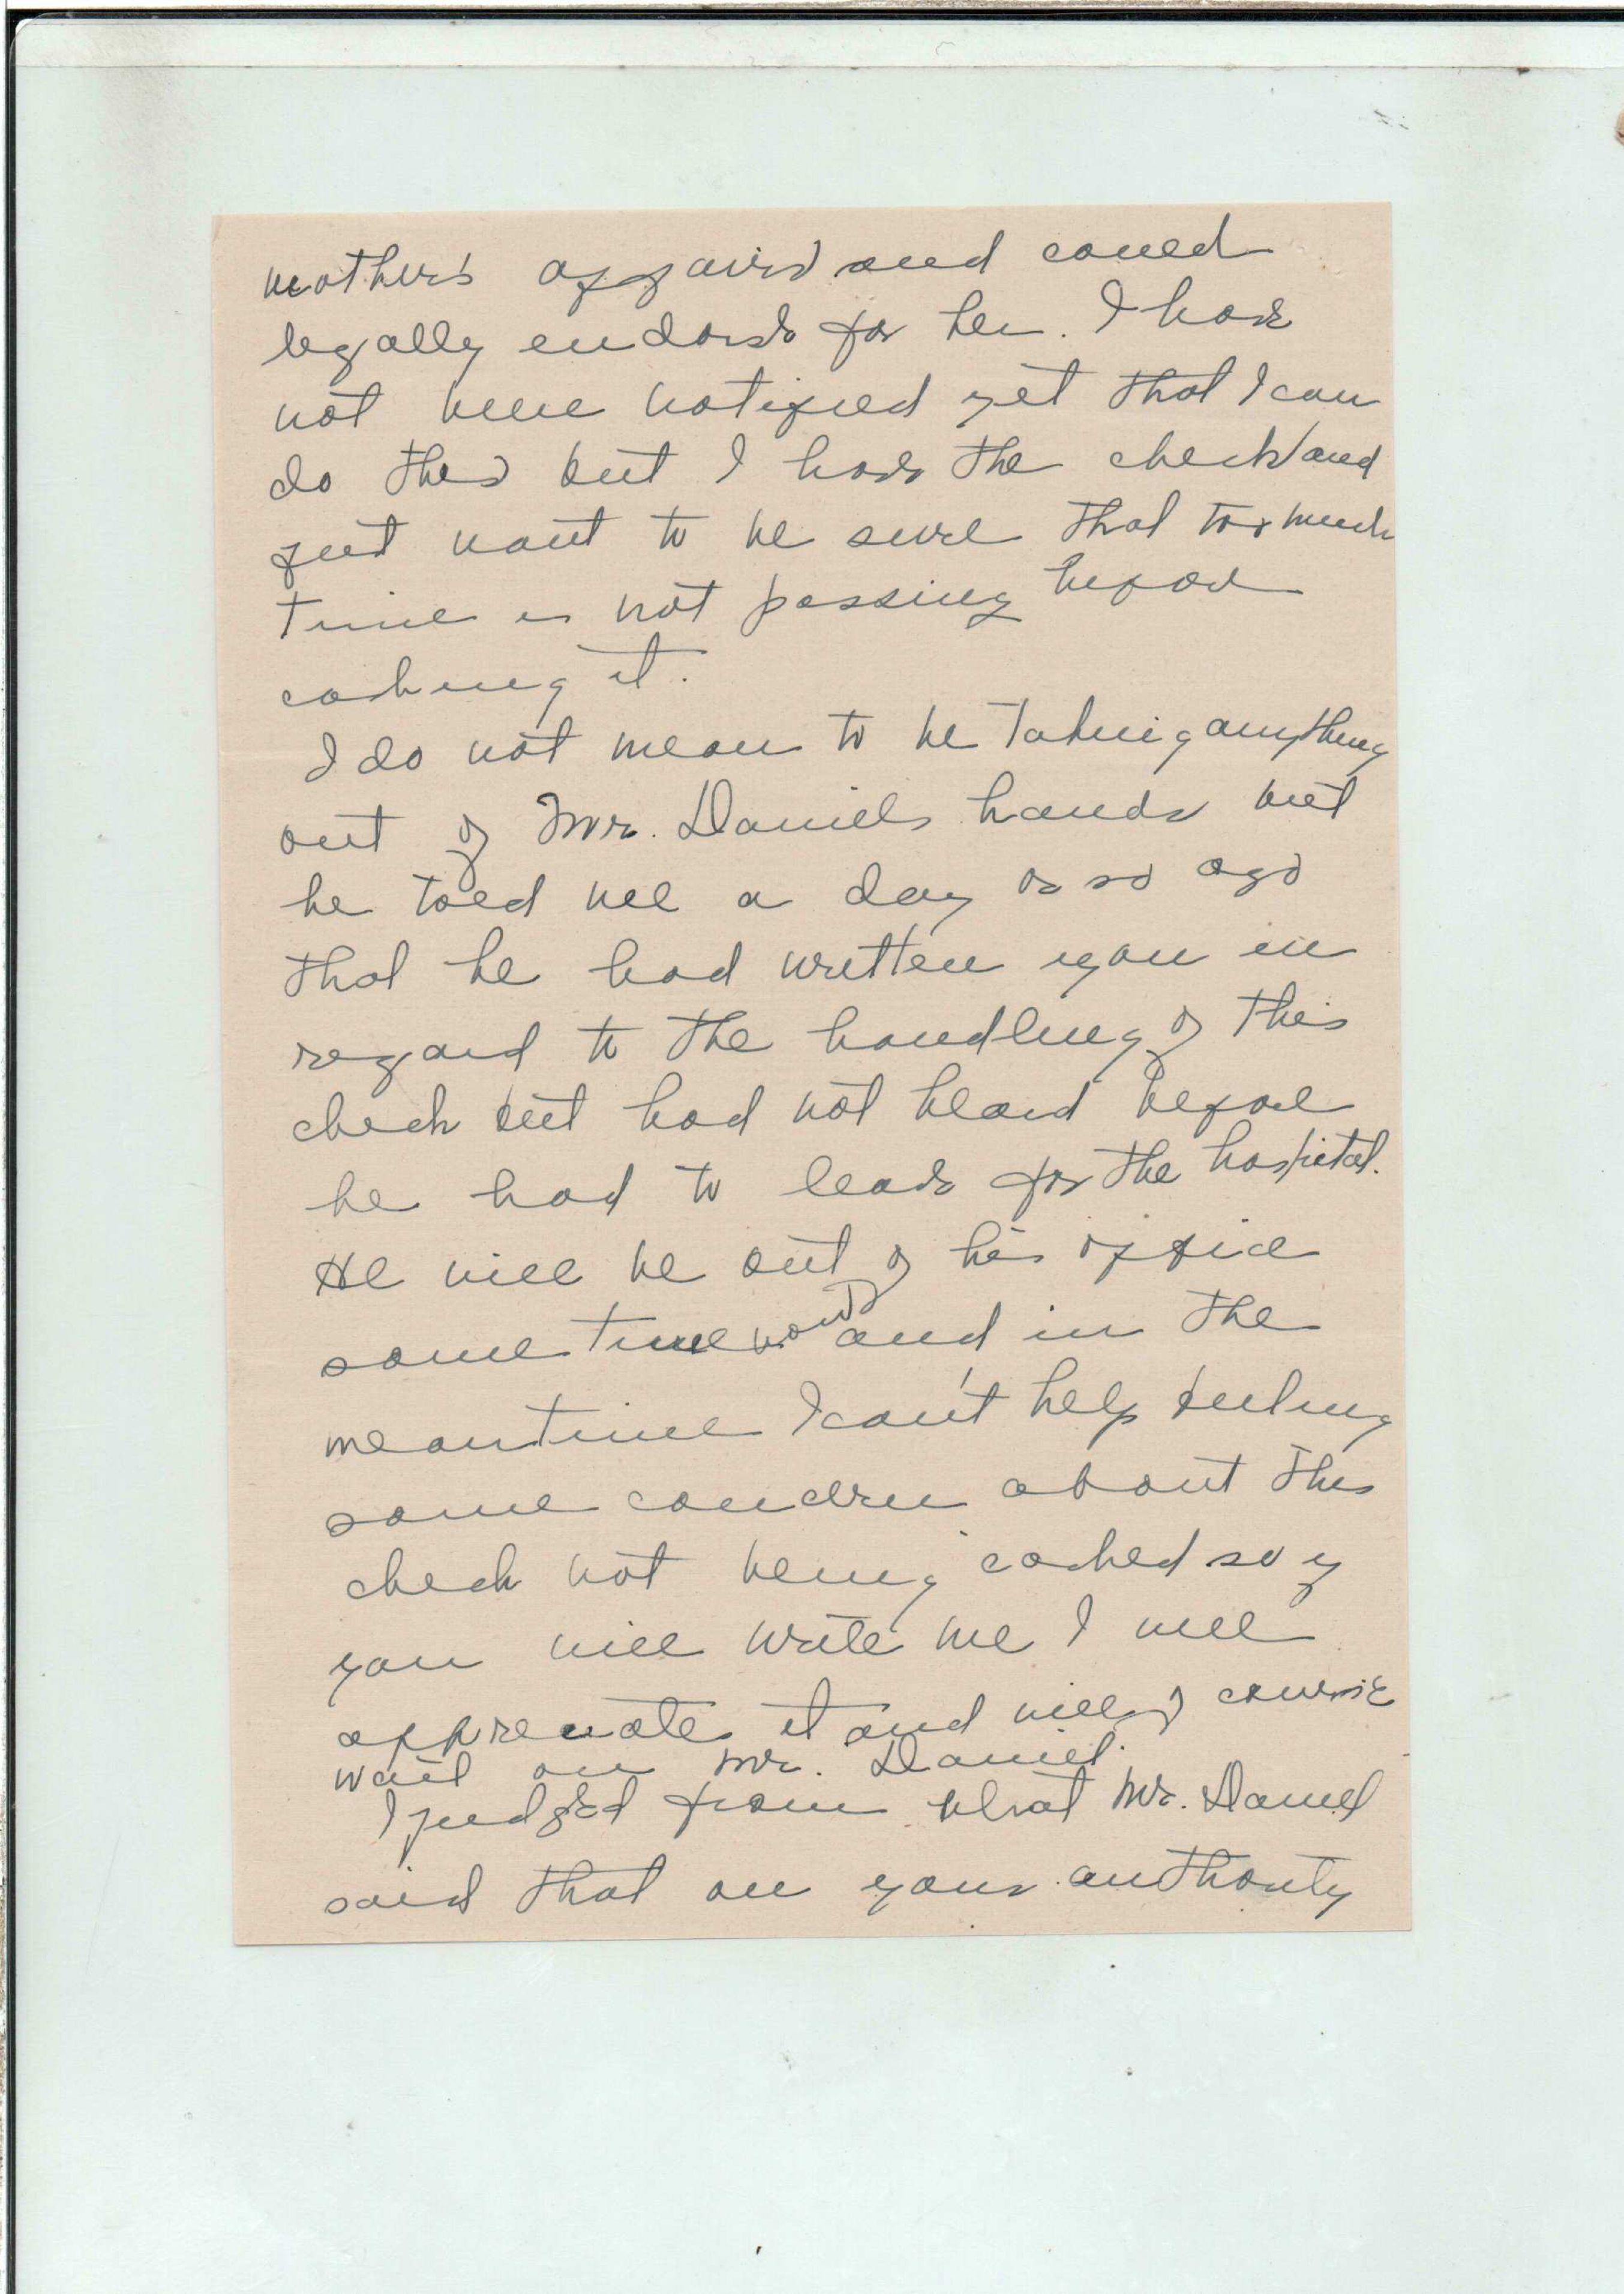 mother's affairs and could
legally endorse for her. I have
not been notified yet that I can
do this but I have the check and
just want to be sure that too much
time is not passing before
cashing it.
I do not mean to be taking anything
out of Mr. Daniels hands but
he told me a day or so ago
that he had written you in
regard to the handling of this
check but had not heard before
he had to leave for the hospital.
He will be out of his office
some time now and in the
meantime I can't help feeling
some concern about this
check not being cashed so if
you will write me I will
appreciate it and will of course
wait on Mr. Daniel.
I judged from what Mr. Daniel
said that on your authority